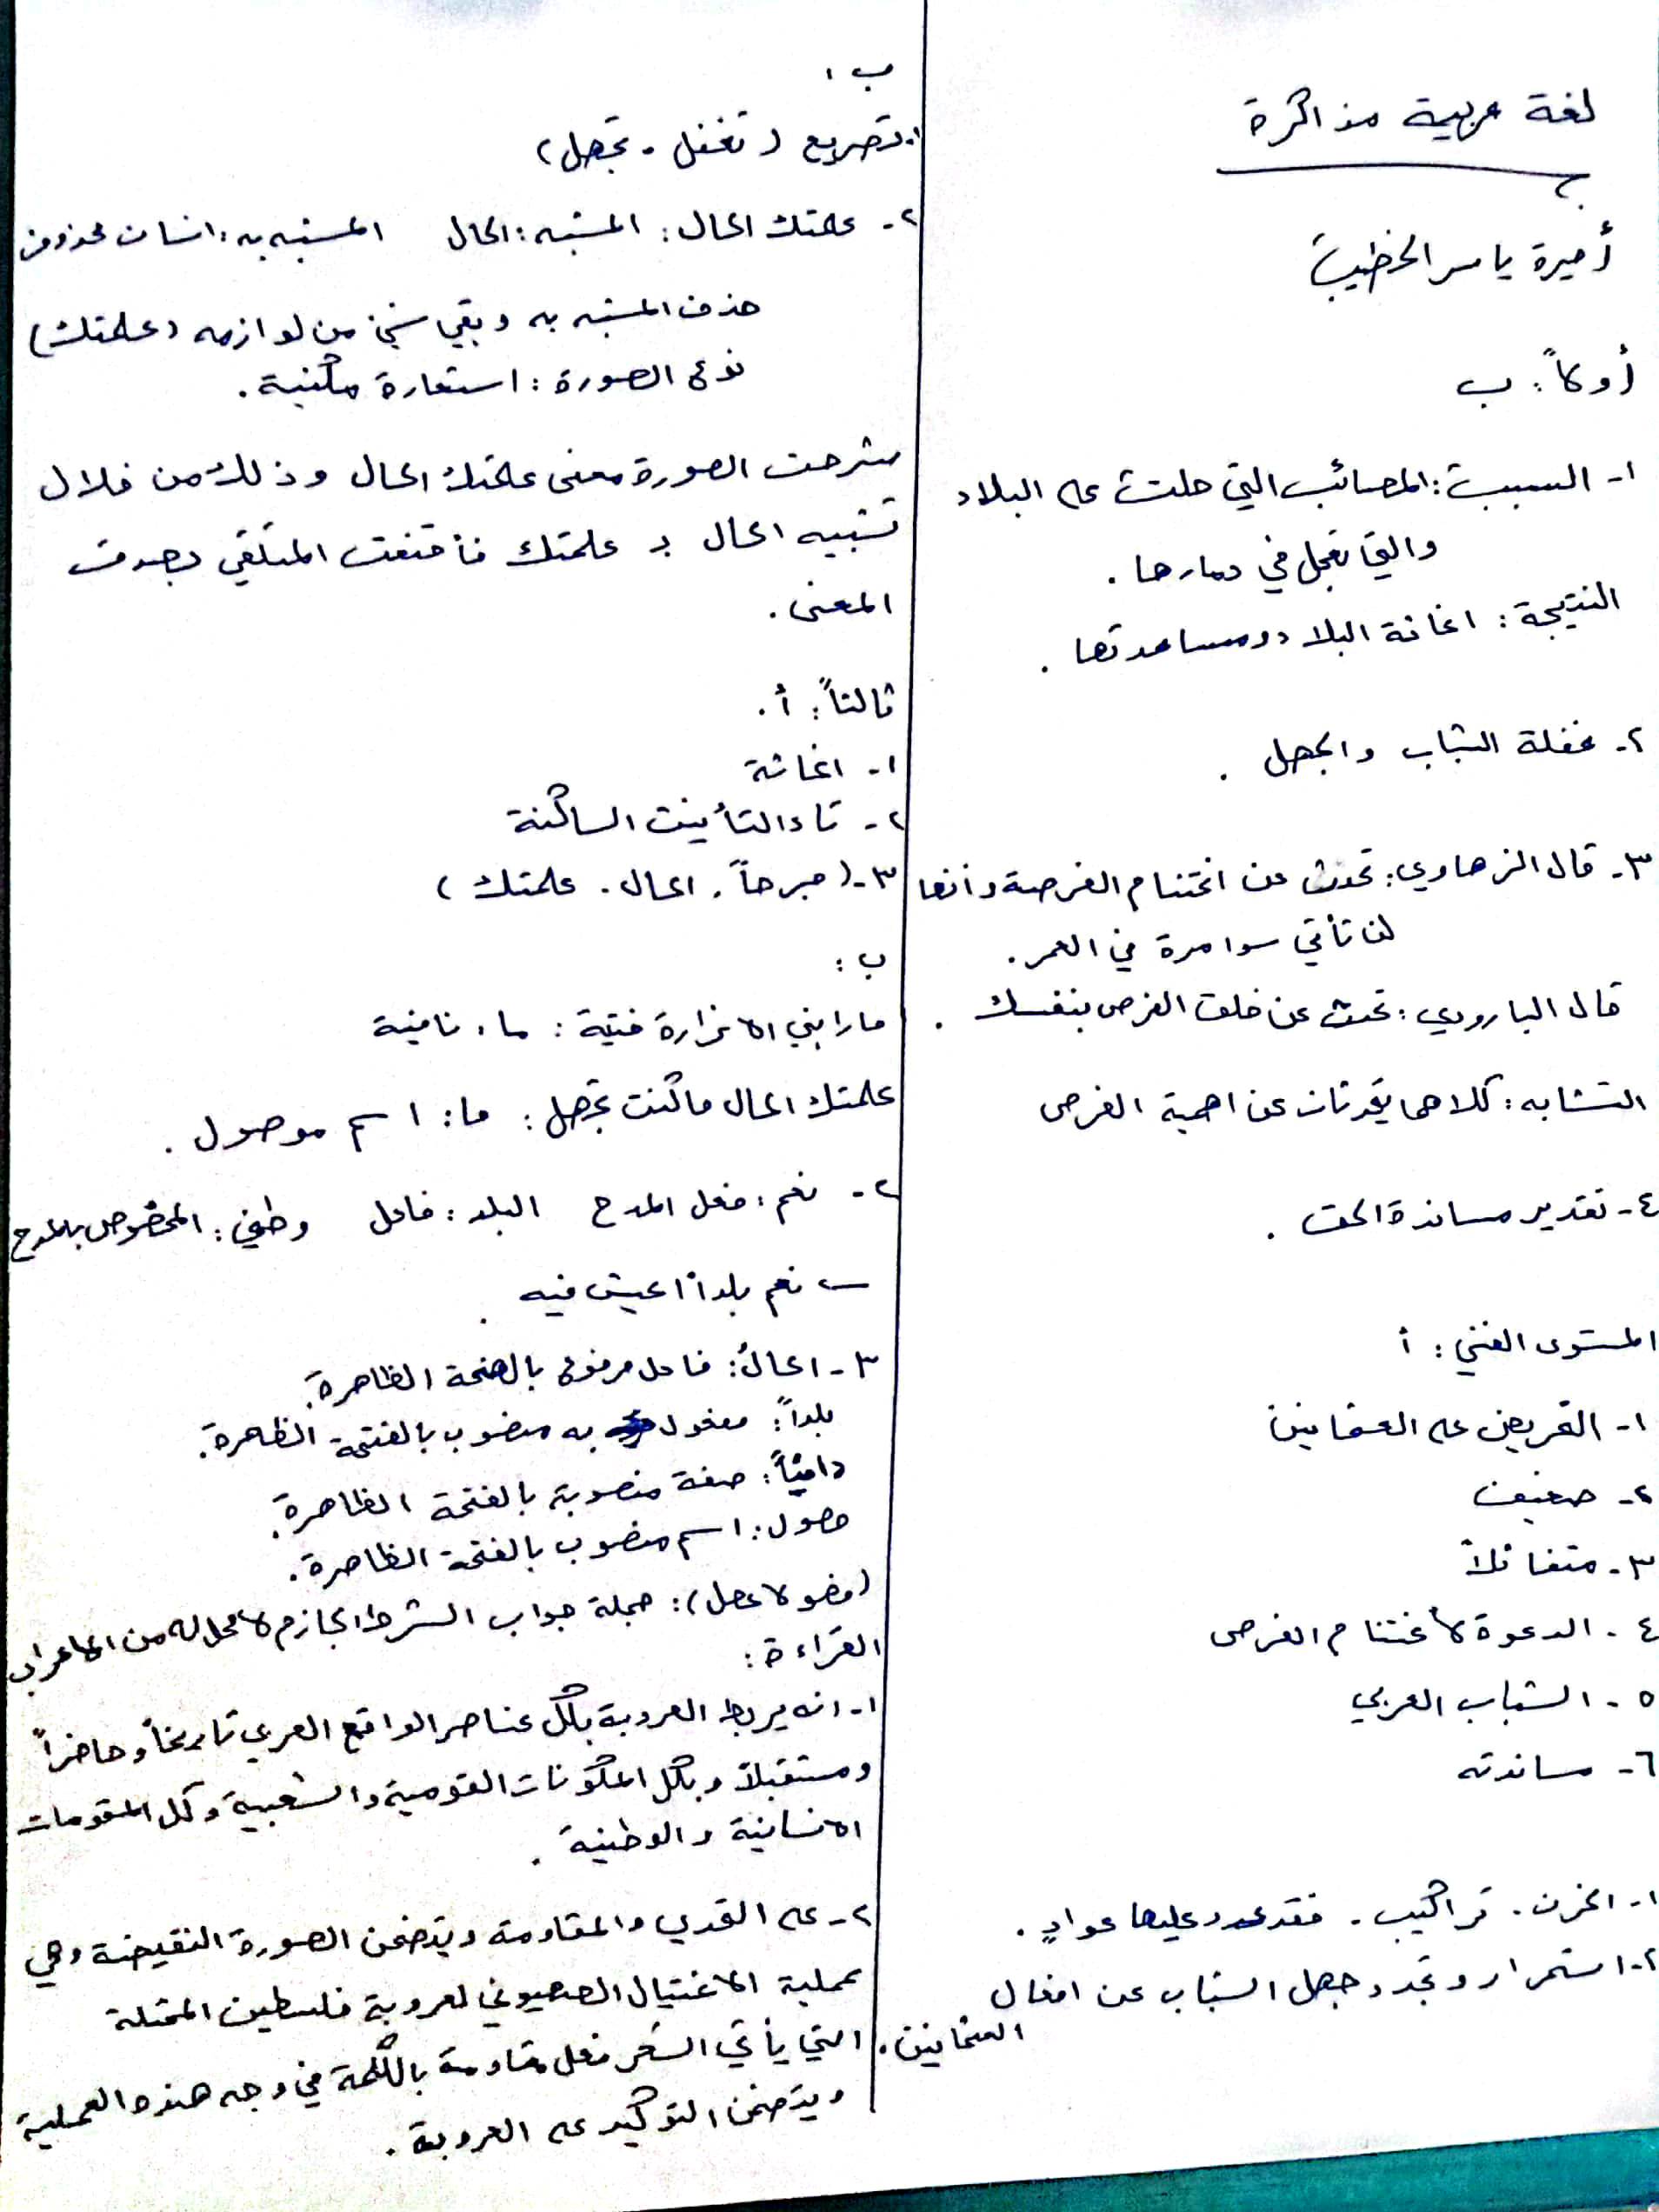 لغة عربية مذاكرة
أميرة ياسر الخطيب
أولاً: ب
١- السبب: المصائب التي حلت على البلاد
والتي تعجل في دمارها.
النتيجة: اغاثة البلاد ومساعدتها.
٢- غفلة الشباب والجهل.
٣- قال الزهاوي: تحدث عن اغتنام الفرصة وأنها
لن تأتي سوا مرة في العمر.
قال البارودي: تحدث عن خلق الفرص بنفسك.
التشابه: كلاهما يتحدثان عن اهمية الفرص
٤- تقدير مساندة الحق.
المستوى الفني: أ
١- التحريض على العثمانيين
٢- ضعيف
٣- متفائلاً
٤. الدعوة لأغتنام الفرص
٥. الشباب العربي
٦- مساندته
١- الحزن. تراكيب. فقد عدد عليها عوادٍ.
٢- استمرار وتجدد جهل الشباب عن افعال
العثمانيين.
ب ١
١. تصريع (تغفل - تجهل)
٢- علمتك الحال: المشبه: الحال المشبه به: انسان محذوف
حذف المشبه به وبقي شيء من لوازمه (علمتك)
نوع الصورة: استعارة مكنية.
شرحت الصورة معنى علمتك الحال وذلك من خلال
تشبيه الحال بـ علمتك فأقنعت المتلقي بصدق
المعنى.
ثالثاً: أ.
١- اغاثة
٢- تاء التأنيث الساكنة
٣- (جرحاً. الحال. علمتك)
ب:
مارابني الا غرارة فتية: ما: نافية
علمتك الحال ما كنت تجهل: ما: اسم موصول.
٢- نعم: فعل المدح البلد: فاعل وطني: المخصوص بالمدح
نعم بلداً اعيش فيه.
٣- الحالُ: فاعل مرفوع بالضمة الظاهرة.
بلداً: مفعول به منصوب بالفتحة الظاهرة.
دامياً: صفة منصوبة بالفتحة الظاهرة.
حصول: اسم منصوب بالفتحة الظاهرة.
(فضولا عجل): جملة جواب الشرط الجازم لا محل له من الاعراب
القراءة:
١- انه يربط العروبة بكل عناصر الواقع العربي تاريخاً وحاضراً
ومستقبلاً وبكل المكونات القومية والشعبية وكل المقومات
الانسانية والوطنية.
٢- على التحدي والمقاومة ويتضمن الصورة النقيضة وهي
عملية الاغتيال الصهيوني لعروبة فلسطين المحتلة
التي يأتي الشعر فعل مقاومة بالكلمة في وجه هذه العملية
ويتضمن التوكيد على العروبة.